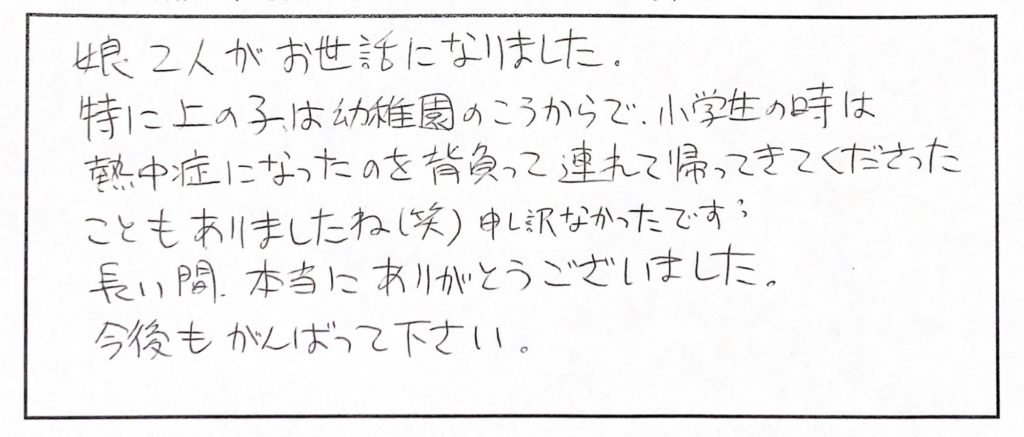 娘2人がお世話になりました。
特に上の子は幼稚園のころからで、小学生の時は
熱中症になったのを背負って連れて帰ってきてくださった
こともありましたね(笑)申し訳なかったです;
長い間、本当にありがとうございました。
今後もがんばって下さい。